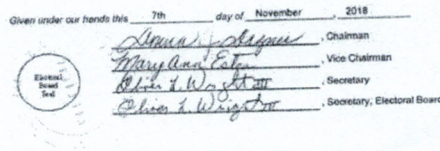 Given under our hands this 7th day of November, 2018
Donna J. , Chairman
Mary Ann , Vice Chairman
Oliver L. Wright III , Secretary
Oliver L. Wright III , Secretary, Electoral Board
Electoral
Board
Seal